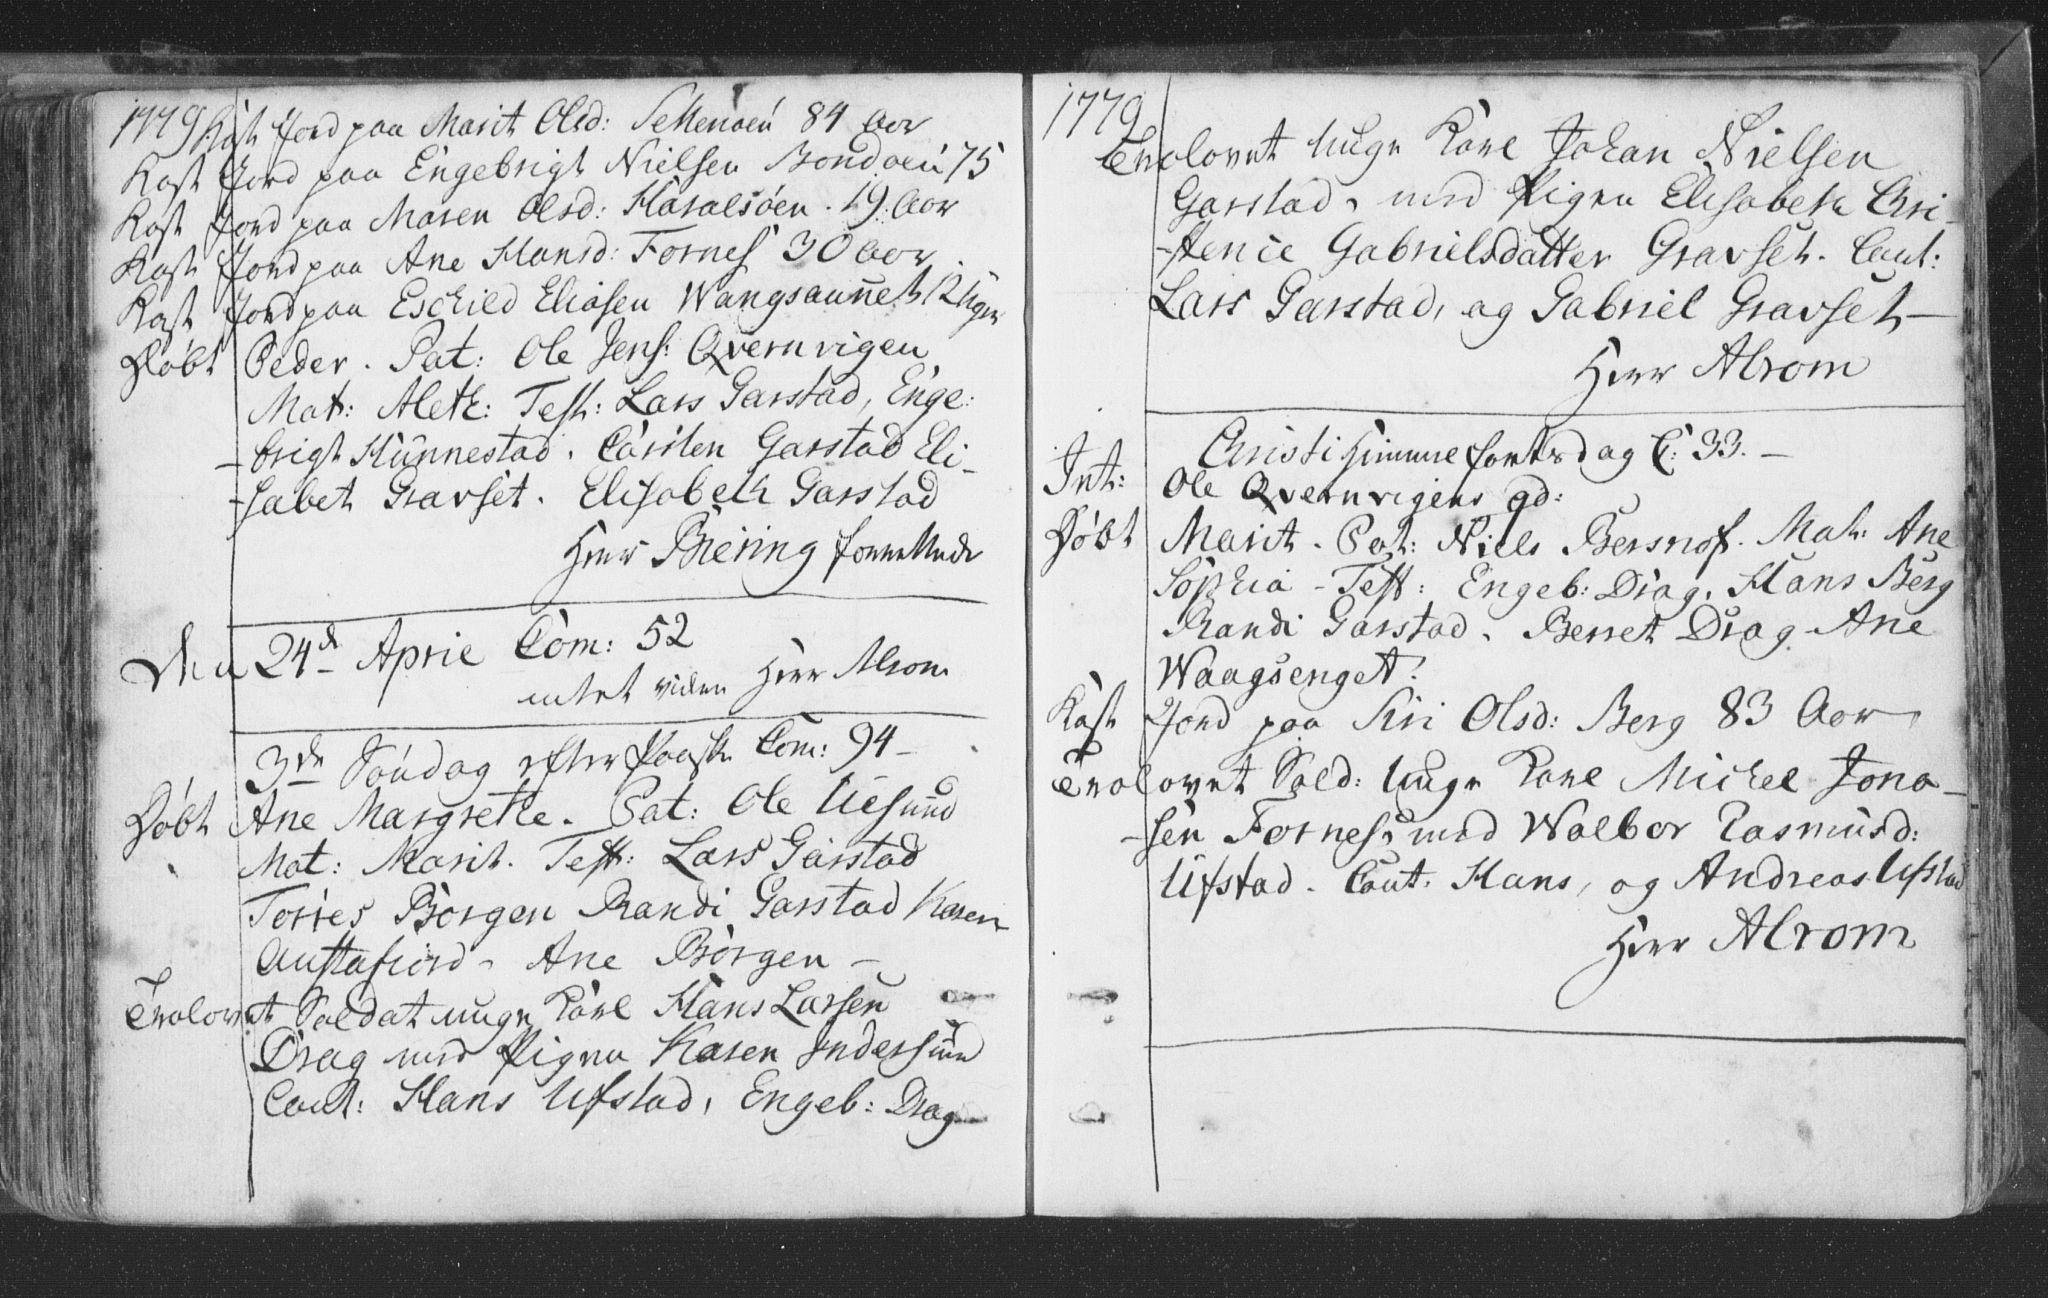 1779 Kast Jord paa Marit Olsd: Settenøen 84 Aar
Kast Jord paa Engebrigt Nielsen Bondøen 75
Kast Jord paa Maren Olsd: Haralsøen. 19 Aar
Kast Jord paa Ane Hansd: Fornes 30 Aar.
Kast Jord paa Eschild Eliasen Wangsaunet 12 Uger
Døbt Peder. Pat: Ole Jens: Qvernvigen
Mat: Aleth: Test: Lars Garstad, Enge-
-brigt Hunnestad. Carsten Garstad Eli-
-sabet Gravset. Elisabeth Garstad
Herr Biering forrettede
Den 24d April Com: 52
intet viden Herr Alrom
3de Søndag efter Paaske Com: 94-
Døbt Ane Margrethe. Pat: Ole Ulsund
Mat: Marit. Test: Lars Garstad
Torres Borgen Randi Garstad Karen
Austafiord - Ane Borgen -
Trolovet Soldat unge Karl Hans Larsen
Drag med Pigen Karen Indersund
Caut: Hans Ufstad, Engeb: Drag
1779
Trolovet unge Karl Johan Nielsen
Garstad, med Pigen Elisabeth Chri-
-stence Gabrielsdatter Gravset. Caut:
Lars Garstad, og Gabriel Gravset,-
Herr Alrom
Christi Himmelfartsdag C: 33. -
Int: Ole Qvernvigens qd:
Døbt Marit. Pat: Niels Bersnof. Mat: Ane
Sophia - Test: Engeb: Drag, Hans Berg
Randi Garstad. Berret Drag. Ane
Waagsenget.
Kast Jord paa Siri Olsd: Berg 83 Aar
Trolovet Sold: unge Karl Michel Jona-
-sen Fornes, med Walbor Rasmusd:
Ufstad. Caut. Hans, og Andreas Ufstad
Herr Alrom